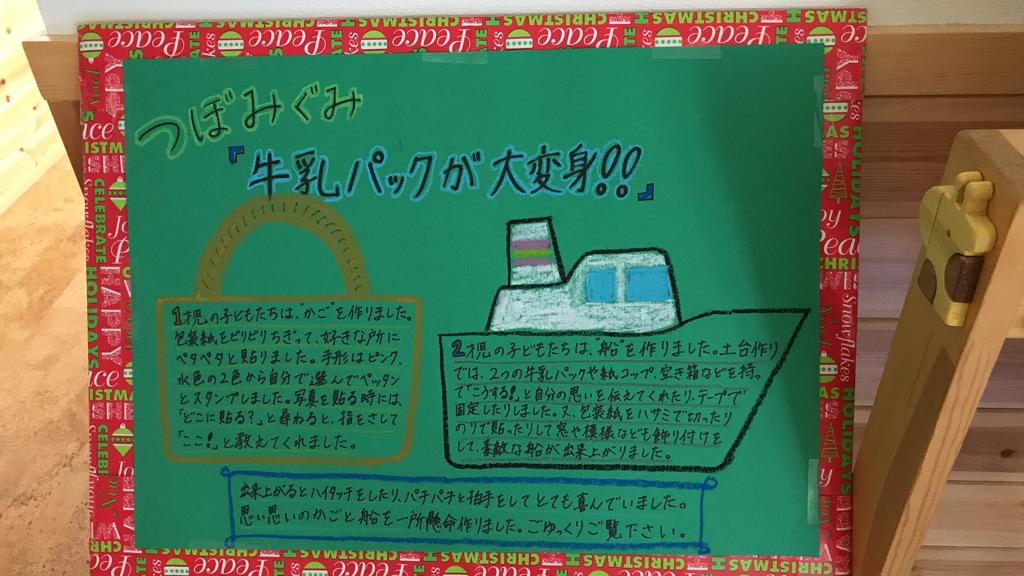 つぼみぐみ
『牛乳パックが大変身!!』
1才児の子どもたちは、"かご"を作りました。
包装紙をビリビリちぎって、好きな所に
ペタペタと貼りました。手形はピンク、
水色の2色から自分で選んでペッタン
とスタンプしました。写真を貼る時には、
「どこに貼る?」と尋ねると、指をさして
「ここ!」と教えてくれました。
2才児の子どもたちは、"船"を作りました。土台作り
では、2つの牛乳パックや紙コップ、空き箱などを持っ
て「こうする!」と自分の思いを伝えてくれたり、テープで
固定したりしました。又、包装紙をハサミで切ったり
のりで貼ったりして窓や模様なども飾り付けを
して、素敵な船が出来上がりました。
出来上がるとハイタッチをしたり、パチパチと拍手をしてとても喜んでいました。
思い思いのかごと船を一所懸命作りました。ごゆっくりご覧下さい。
Peace
CHRISTMAS
CELEBRATE
HOLIDAYS
Snowflakes